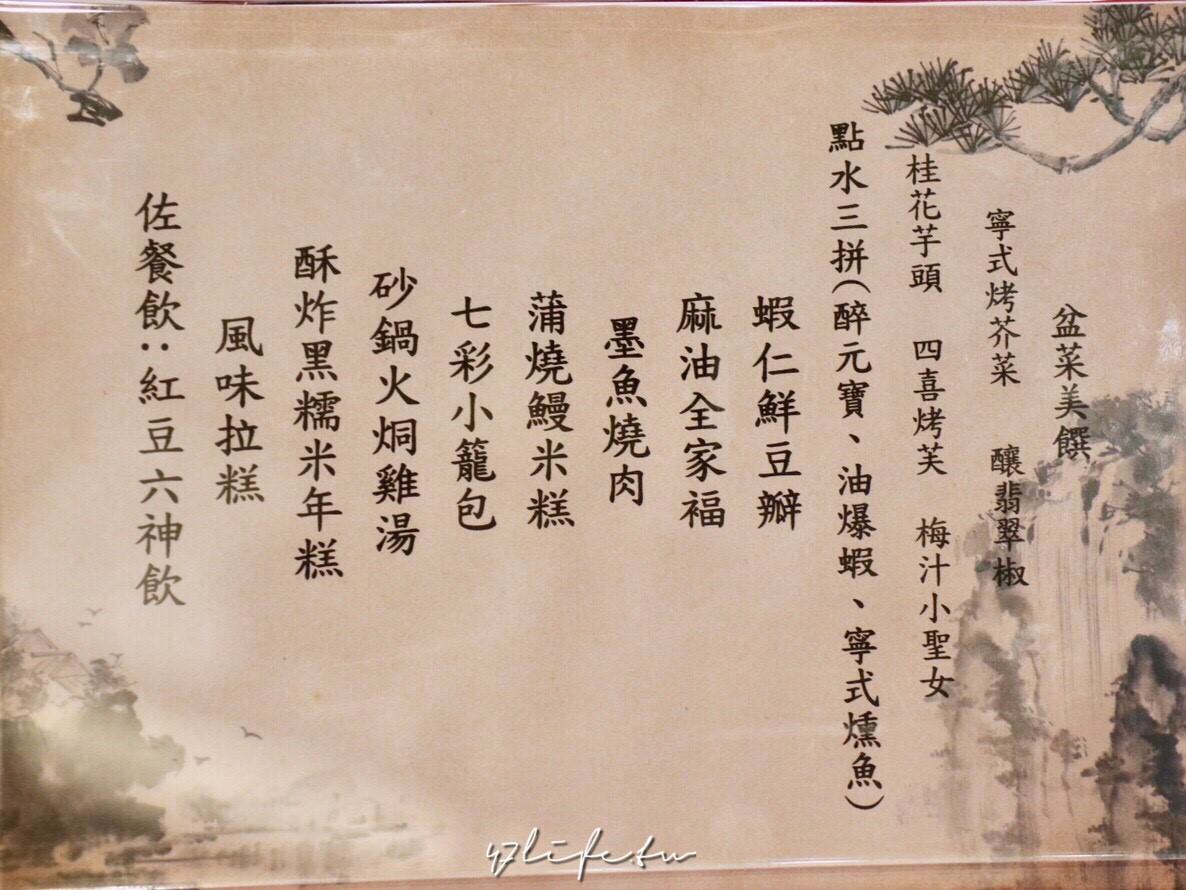 盆菜美饌
寧式烤芥菜　釀翡翠椒
桂花芋頭　四喜烤芙　梅汁小聖女
點水三拼(醉元寶、油爆蝦、寧式燻魚)
蝦仁鮮豆瓣
麻油全家福
墨魚燒肉
蒲燒鰻米糕
七彩小籠包
砂鍋火烔雞湯
酥炸黑糯米年糕
風味拉糕
佐餐飲:紅豆六神飲
47life.tw